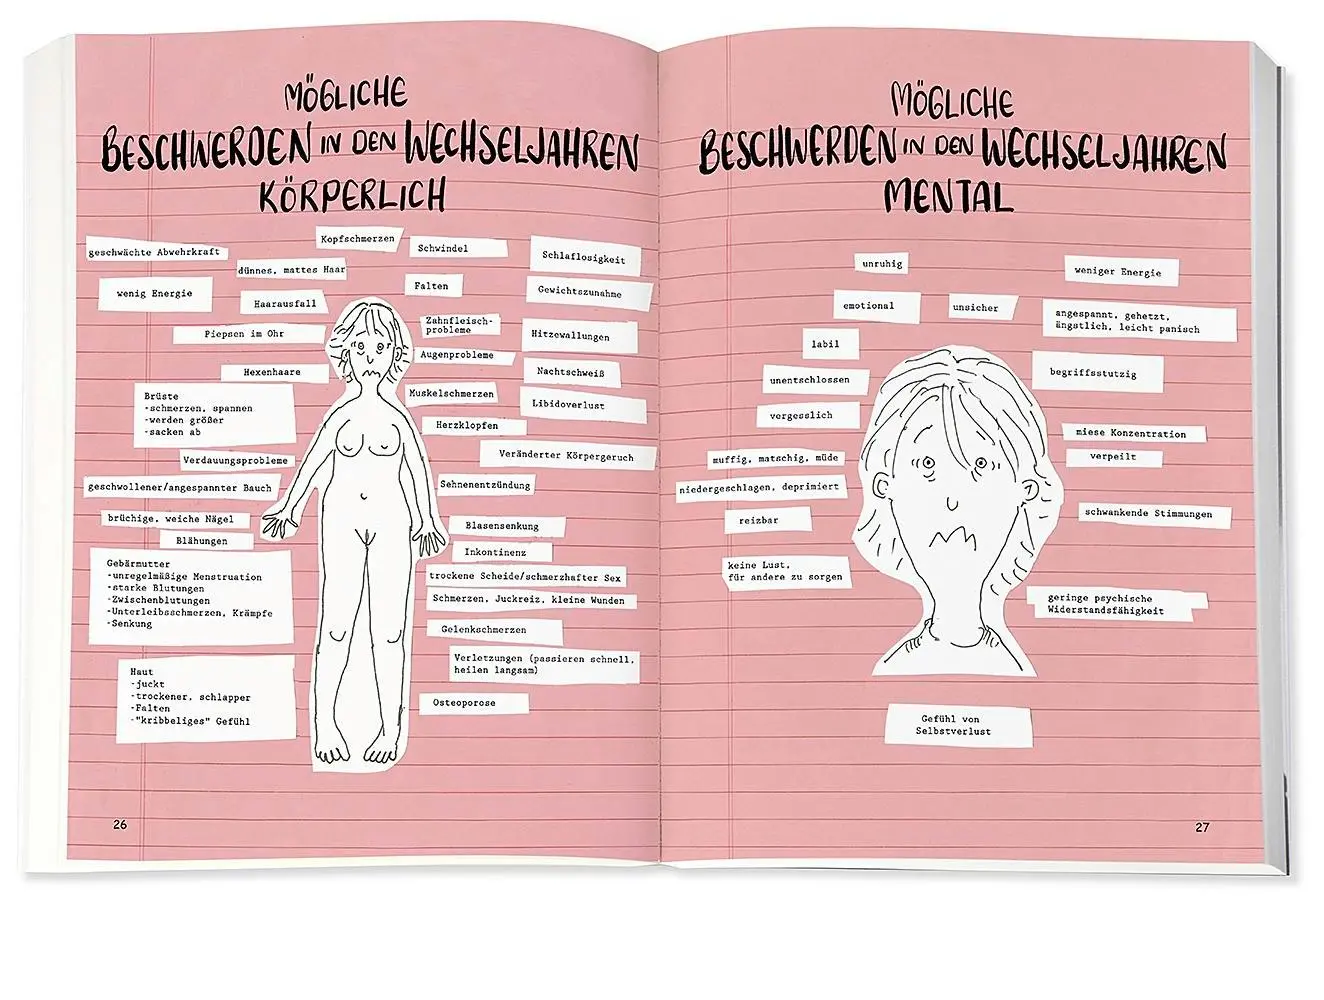 MÖGLICHE
BESCHWERDEN IN DEN WECHSELJAHREN
KÖRPERLICH
Kopfschmerzen
geschwächte Abwehrkraft
Schwindel
Schlaflosigkeit
dünnes, mattes Haar
wenig Energie
Falten
Gewichtszunahme
Haarausfall
Zahnfleisch-
probleme
Piepsen im Ohr
Hitzewallungen
Augenprobleme
Hexenhaare
Nachtschweiß
Muskelschmerzen
Brüste
-schmerzen, spannen
-werden größer
-sacken ab
Libidoverlust
Herzklopfen
Verdauungsprobleme
Veränderter Körpergeruch
geschwollener/angespannter Bauch
Sehnenentzündung
brüchige, weiche Nägel
Blasensenkung
Blähungen
Inkontinenz
Gebärmutter
-unregelmäßige Menstruation
-starke Blutungen
-Zwischenblutungen
-Unterleibsschmerzen, Krämpfe
-Senkung
trockene Scheide/schmerzhafter Sex
Schmerzen, Juckreiz, kleine Wunden
Gelenkschmerzen
Verletzungen (passieren schnell,
heilen langsam)
Haut
-juckt
-trockener, schlapper
-Falten
-"kribbeliges" Gefühl
Osteoporose
26
MÖGLICHE
BESCHWERDEN IN DEN WECHSELJAHREN
MENTAL
unruhig
weniger Energie
emotional
unsicher
angespannt, gehetzt,
ängstlich, leicht panisch
labil
begriffsstutzig
unentschlossen
vergesslich
miese Konzentration
muffig, matschig, müde
verpeilt
niedergeschlagen, deprimiert
schwankende Stimmungen
reizbar
keine Lust,
für andere zu sorgen
geringe psychische
Widerstandsfähigkeit
Gefühl von
Selbstverlust
27